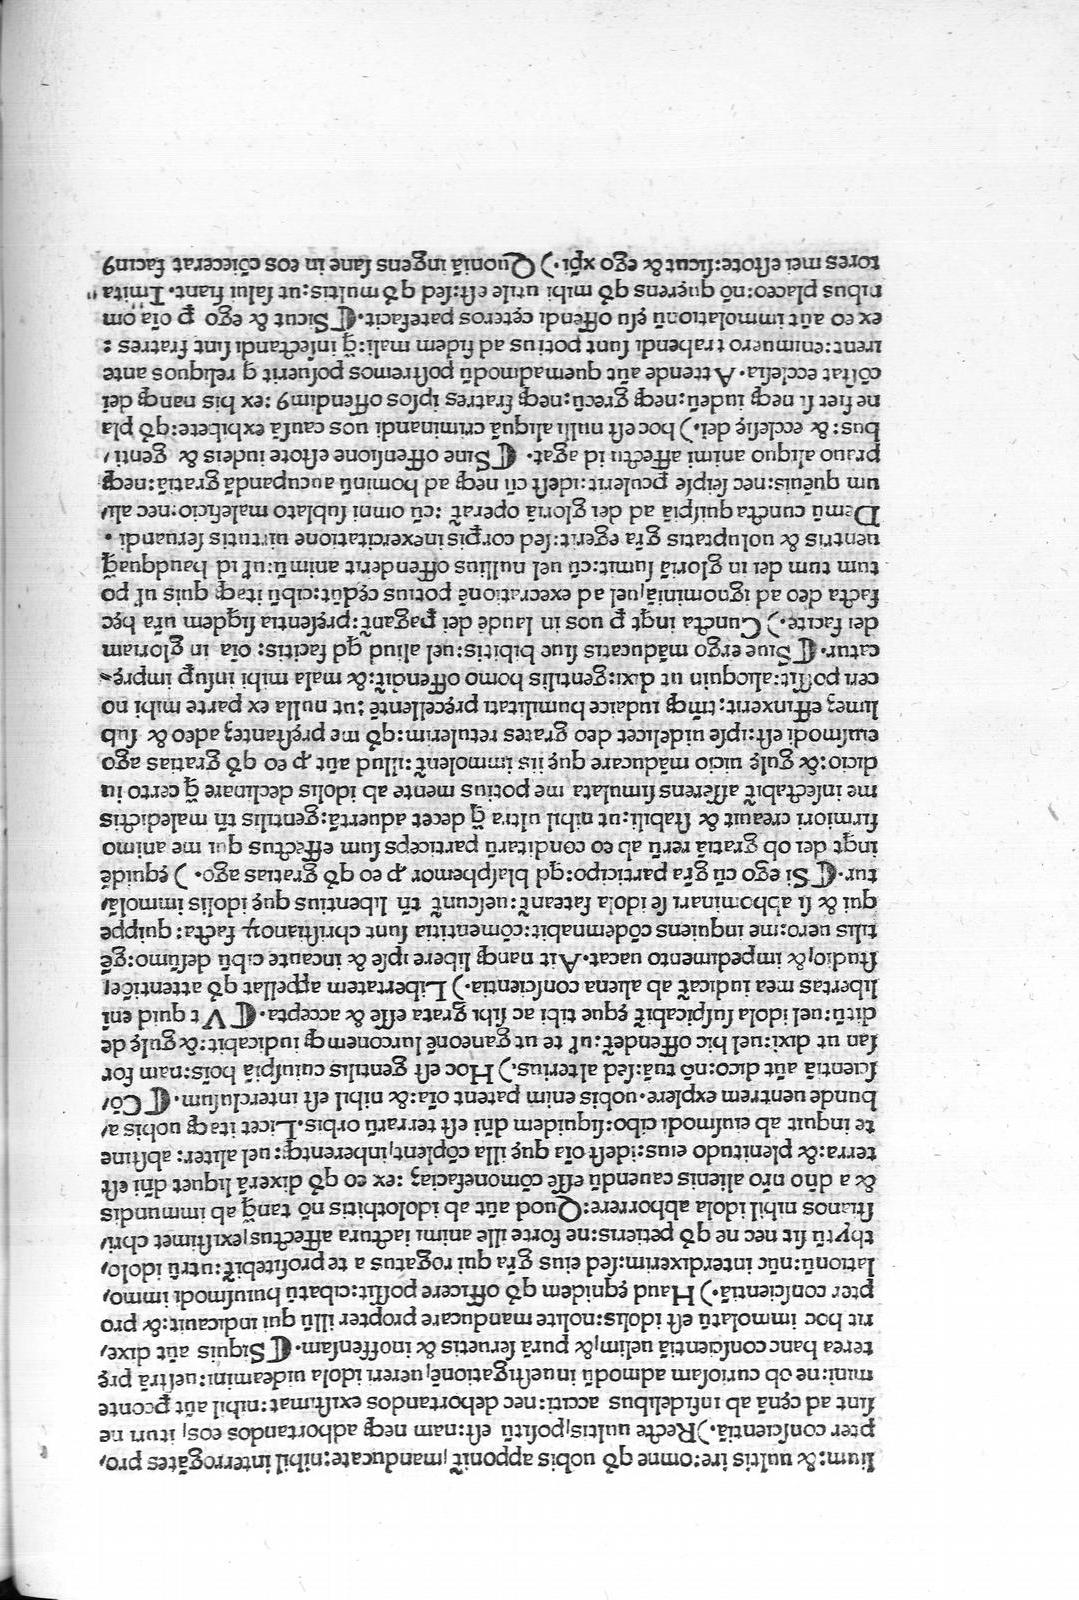 lium:& uultis ire:omne qđ uobis apponit̃,manducate:nihil interrogãtes pro,
pter conscientiã.)Recte uultis,positũ est:nam neq; adhortandos eos, ituri ne
sint ad cęnã ab infidelibus acciti:nec dehortandos existimat:nihil aũt ꝑconte
mini:ne ob curiosam admodũ inuestigationẽ,uereri idola uideamini:uestrã prę
terea hanc conscientiã uelim,& purã seruetis & inoffensam.⸿Siquis aũt dixe,
rit hoc immolatũ est idolis:nolite manducare propter illũ qui indicauit:& pro
pter conscientiã.) Haud ęquidem qđ officere possit:cibatũ huiusmodi immo,
lationũ:nũc interdixerim:sed eius gr̃a qui rogatus a te profitebit̃:utrũ idolo,
thytũ sit nec ne qđ petieris:ne forte ille animi iactura affectus,existimet chri,
stianos nihil idola abhorrere:Quod aũt ab idolothitis nõ tanq̃ ab immundis
& a dño nr̃o alienis cauendũ esse cõmonefaciaꝫ :ex eo qđ dixerã liquet dñi est
terra:& plenitudo eius:idest oĩa quę illa cõplent,inherentq;:uel aliter: abstine
te inquit ab eiusmodi cibo:siquidem dñi est terrarũ orbis.Licet itaq; uobis a,
bunde uentrem explere.uobis enim patent oĩa:& nihil est interclusum.⸿ Cõ,
scientiã aũt dico:nõ tuã:sed alterius.) Hoc est gentilis cuiuspiã hoĩs:nam for
san ut dixi:uel hic offendet̃:uł te ut ganeonẽ lurconemq; iudicabit:& gulę de
ditũ:uel idola suspicabit̃ ęque tibi ac sibi grata esse & accepta.⸿Vt quid enĩ
libertas mea iudicat̃ ab aliena conscientia.) Libertatem appellat qđ attentiõe,
studio,& impedimento uacat.Ait nanq; libere ipse & incaute cibũ desumo:gẽ
tilis uero:me inquiens cõdemnabit:cõmentitia sunt christianoꝝ facta: quippe
qui & si abhominari se idola fateant̃:uescunt̃ tñ libentius quę idolis immolã,
tur.⸿Si ego cũ gr̃a participo:qd blasphemor ꝓ eo qđ gratias ago. ) ęquidẽ
inqt dei ob gratiã rerũ ab eo conditarũ particeps sum effectus qui me animo
firmiori creauit & stabili:ut nihil ultra q̃ decet aduertã:gentilis tñ maledictis
me insectabit̃ asserens simulata me potius mente ab idolis declinare q̃ certo iu
dicio:& gulę uicio mãducare quę iis immolent̃:illud aũt ꝓ eo qđ gratias ago
eiusmodi est:ipse uidelicet deo grates retulerim:qđ me pręstanteꝫ adeo & sub
limeꝫ effinxerit:tñq; iudaice humilitati pręcellentẽ :ut nulla ex parte mihi no
ceri possit:alioquin ut dixi:gentilis homo offendit̃:& mala mihi insuꝑ imprę,
catur.⸿Siue ergo mãducatis siue bibitis:uel aliud qd facitis: oĩa in gloriam
dei facite.) Cuncta inqt ꝑ uos in laudẽ dei ꝑagant̃:pręsentia siqdem ur̃a hęc
facta deo ad ignominiã,uel ad execrationẽ potius cędũt:cibũ itaq; quis uł po
tum tum dei in gloriã sumit:cũ uel nullius offenderit animũ:uł id haudquaq̃
uentris & uoluptatis gr̃a egerit:sed corꝑis inexercitatione uirtutis seruandi .
Demũ cuncta quispiã ad dei gloriã operat̃ :cũ omni sublato maleficio:nec ali,
um quẽuis:nec seipse ꝑculerit:idest cũ neq; ad hominũ aucupandã gratiã:neq;
prauo aliquo animi affectu id agat. ⸿Sine offensione estote iudeis & genti,
bus:& ecclesię dei.) hoc est nulli aliquã criminandi uos causã exhibete:qđ pla
ne fiet si neq; iudeũ:neq; grecũ:neq; fratres ipsos offendimꝰ :ex his nanq; dei
cõstat ecclesia.Attende aũt quemadmodũ postremos posuerit q reliquos ante
irent:enimuero trahendi sunt potius ad fidem mali:q̃ insectandi sint fratres :
ex eo aũt immolationũ ęsu offendi cęteros patefacit.⸿Sicut & ego ꝑ oĩa om
nibus placeo:nõ quęrens qđ mihi utile est:sed qđ multis:ut salui fiant. Imita"
tores mei estote:sicut & ego xp̃i.) Quoniã ingens sane in eos cõiecerat facinꝰ